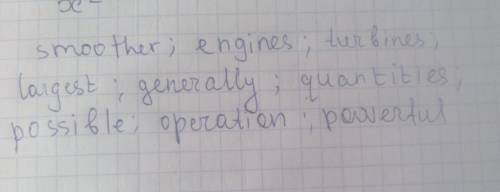 smoother; engines; turbines;
largest; generally; quantities;
possible; operation; powerful